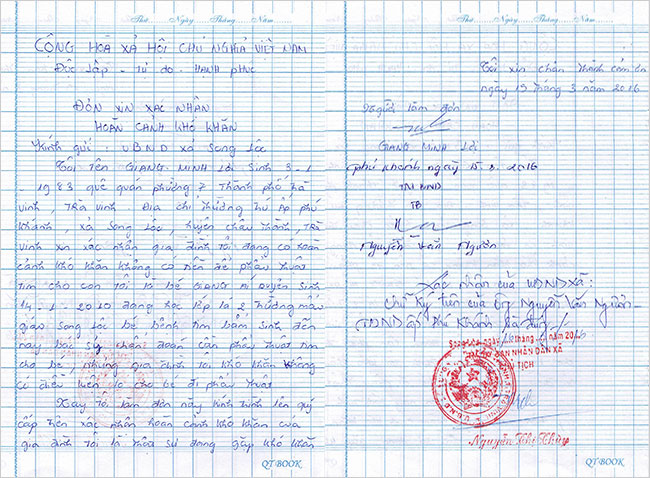 Thứ Ngày Tháng Năm
CỘNG HOÀ XẢ HỘI CHỦ NGHĨA VIỆT NAM
Độc lập - tự do - HẠNH PHÚC
ĐƠN XIN XÁC NHẬN
HOÀN CẢNH KHÓ KHĂN
Kính gửi : UBND xả Song Lộc
Tôi tên GIANG MINH Lời Sinh 3-1
-1983 quê quán phường 7 Thành phố trà
vinh, Trà vinh Địa chỉ thường trú Ấp phú
khánh, xả Song Lộc, huyện châu Thành, Trà
vinh xin xác nhận gia đình tôi đang có hoàn
cảnh khó khăn không có tiền để phẩu thuật
tim cho con tôi là bé GIANG Mĩ Duyên sinh
14-1-2010 đang học lớp lá 2 trường mẩu
giáo Song Lộc bé bệnh tim bẩm sinh đến
nay bác sỹ chẩn đoán cần phẩu thuật tim
cho bé, nhưng gia đình tôi khó khăn không
có điều kiện lo cho bé đi phẩu thuật
Nay tôi làm đơn này kính trình lên quý
cấp trên xác nhận hoàn cảnh khó khăn của
gia đình tôi là thừa sự đang gặp khó khăn
QT-BOOK
Thứ Ngày Tháng Năm
Tôi xin chân thành cảm ơn
ngày 15 tháng 3 năm 2016
người làm đơn
GIANG MINH Lời
phú khánh ngày 15.3.2016
TM BND
TB
Nguyễn Văn Nguơn
Xác nhận của UBND Xã:
Chữ ký trên của ông Nguyễn Văn Nguơn -
ấp Phú Khánh là đúng
Song Lộc, ngày tháng năm 2016
ỦY BAN NHÂN DÂN XÃ
TỊCH
Nguyễn Thị Thủy
QT-BOOK